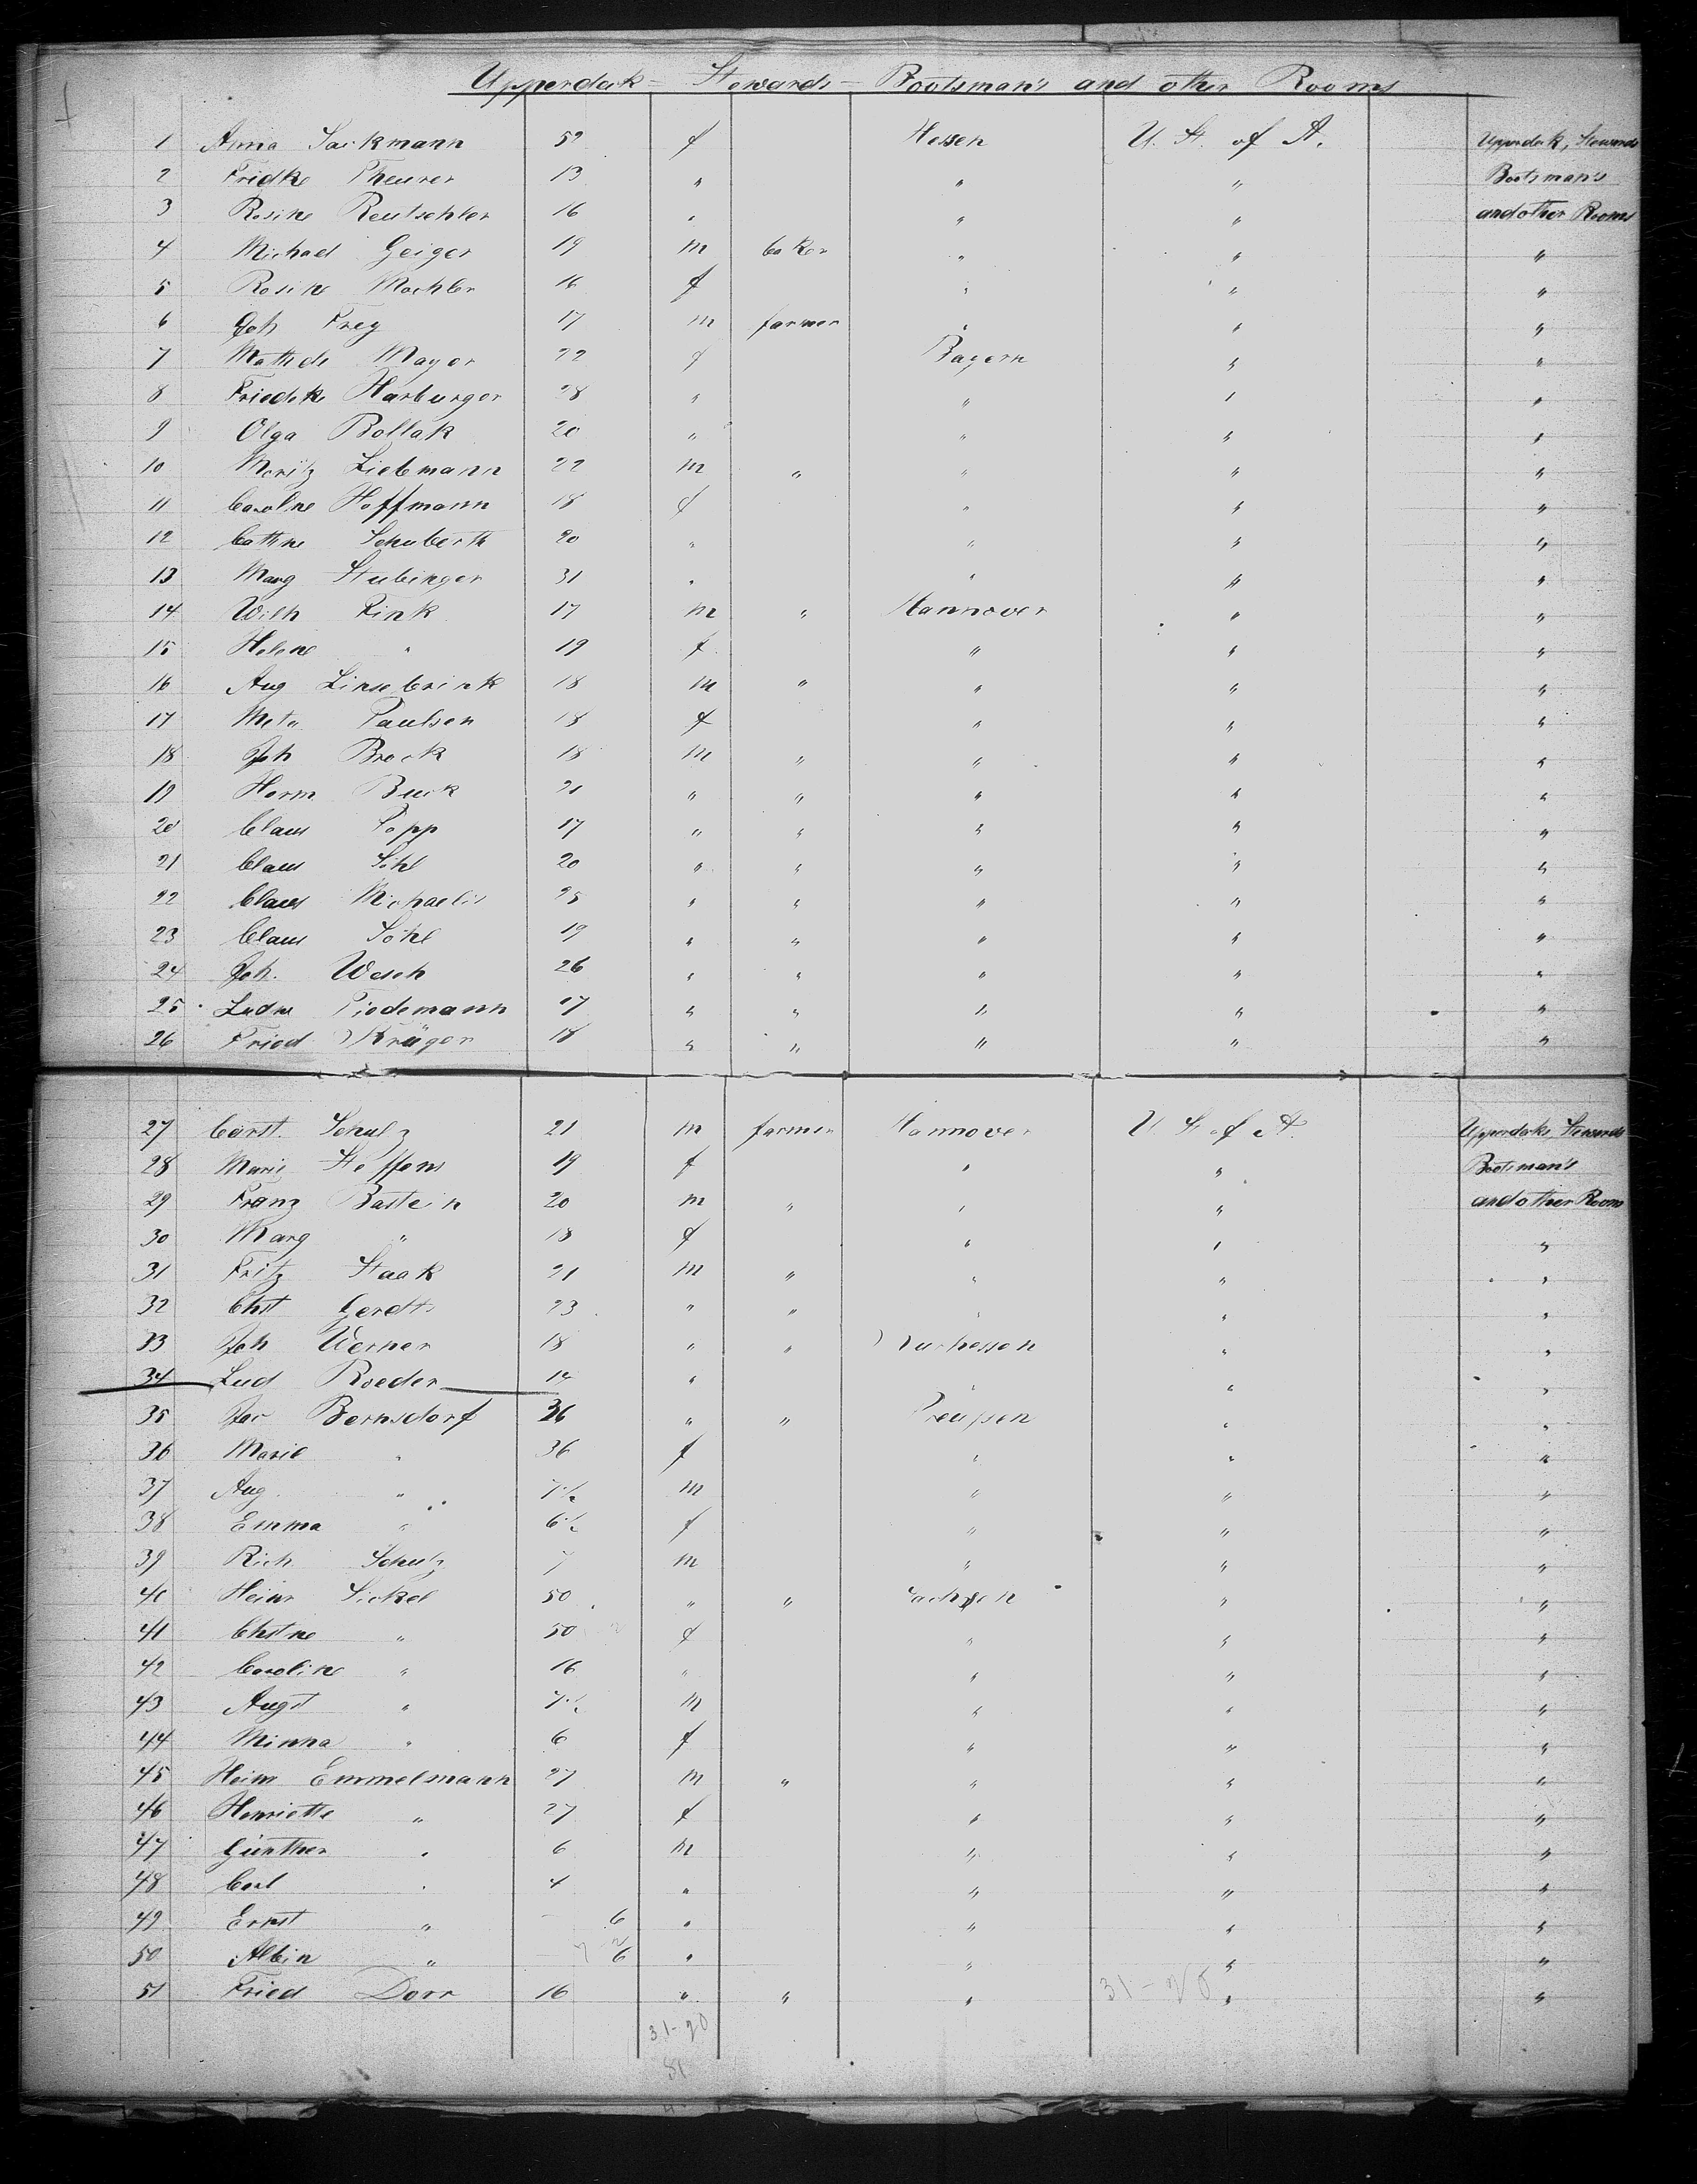 Upperdeck - Stewards - Bootsman's and other Rooms
1 Anna Sackmann 52 f Hessen U. St. of A. Upperdeck, Stewards
2 Fridke Theurer 13 " " " Bootsman's
3 Rosine Reutschler 16 " " " and other Rooms
4 Michael Geiger 19 m baker " " "
5 Rosine Mochler 16 f " " "
6 Joh Frey 17 m farmer " " "
7 Mathede Mayer 22 f Bayern " "
8 Friedeke Harburger 28 " " " "
9 Olga Bollak 20 " " " "
10 Moritz Liebmann 22 m " " " "
11 Carolne Hoffmann 18 f " " "
12 Cathne Schuberth 20 " " " "
13 Marg Stubinger 31 " " " "
14 Wilh Fink 17 m " Hannover " "
15 Helene " 19 f " " "
16 Aug Linsebrink 18 m " " " "
17 Meta Paulsen 18 f " " "
18 Joh Brock 18 m " " " "
19 Herm Buck 21 " " " " "
20 Claus Popp 17 " " " " "
21 Claus Söhl 20 " " " " "
22 Claus Michaelis 25 " " " " "
23 Claus Söhl 19 " " " " "
24 Joh. Wesch 26 " " " " "
25 Ludw Tiedemann 17 " " " " "
26 Fried Krüger 18 " " " " "
27 Carst. Schulz 21 m farmer Hannover U St of A. Upperdeck Stewards
28 Marie Steffens 19 f " " Bootsman's
29 Franz Bastein 20 m " " " and other Room
30 Marg " 18 f " " "
31 Fritz Staak 21 m " " " "
32 Chst Gerdts 23 " " " " "
33 Joh Werner 18 " " Kurhessen " "
34 Lud Roeder 14 " " " "
35 Jac Bernsdorf 36 " " Preussen " "
36 Marie " 36 f " " "
37 Aug " 7 1/2 m " " "
38 Emma " 6 1/2 f " " "
39 Rich Schulz 7 m " " "
40 Heinr Sickel 50 " " Sachsen " "
41 Chstne " 50 f " " "
42 Caroline " 16 " " " "
43 Augst " 7 1/2 m " " "
44 Minna " 6 f " " "
45 Heinr Emmelmann 27 m " " " "
46 Henriette " 27 f " " "
47 Günther " 6 m " " "
48 Carl " 4 " " " "
49 Ernst " 6 " " " "
50 Albin " 6 " " " "
51 Fried Dorr 16 " " " 31-20 " "
31-20
51